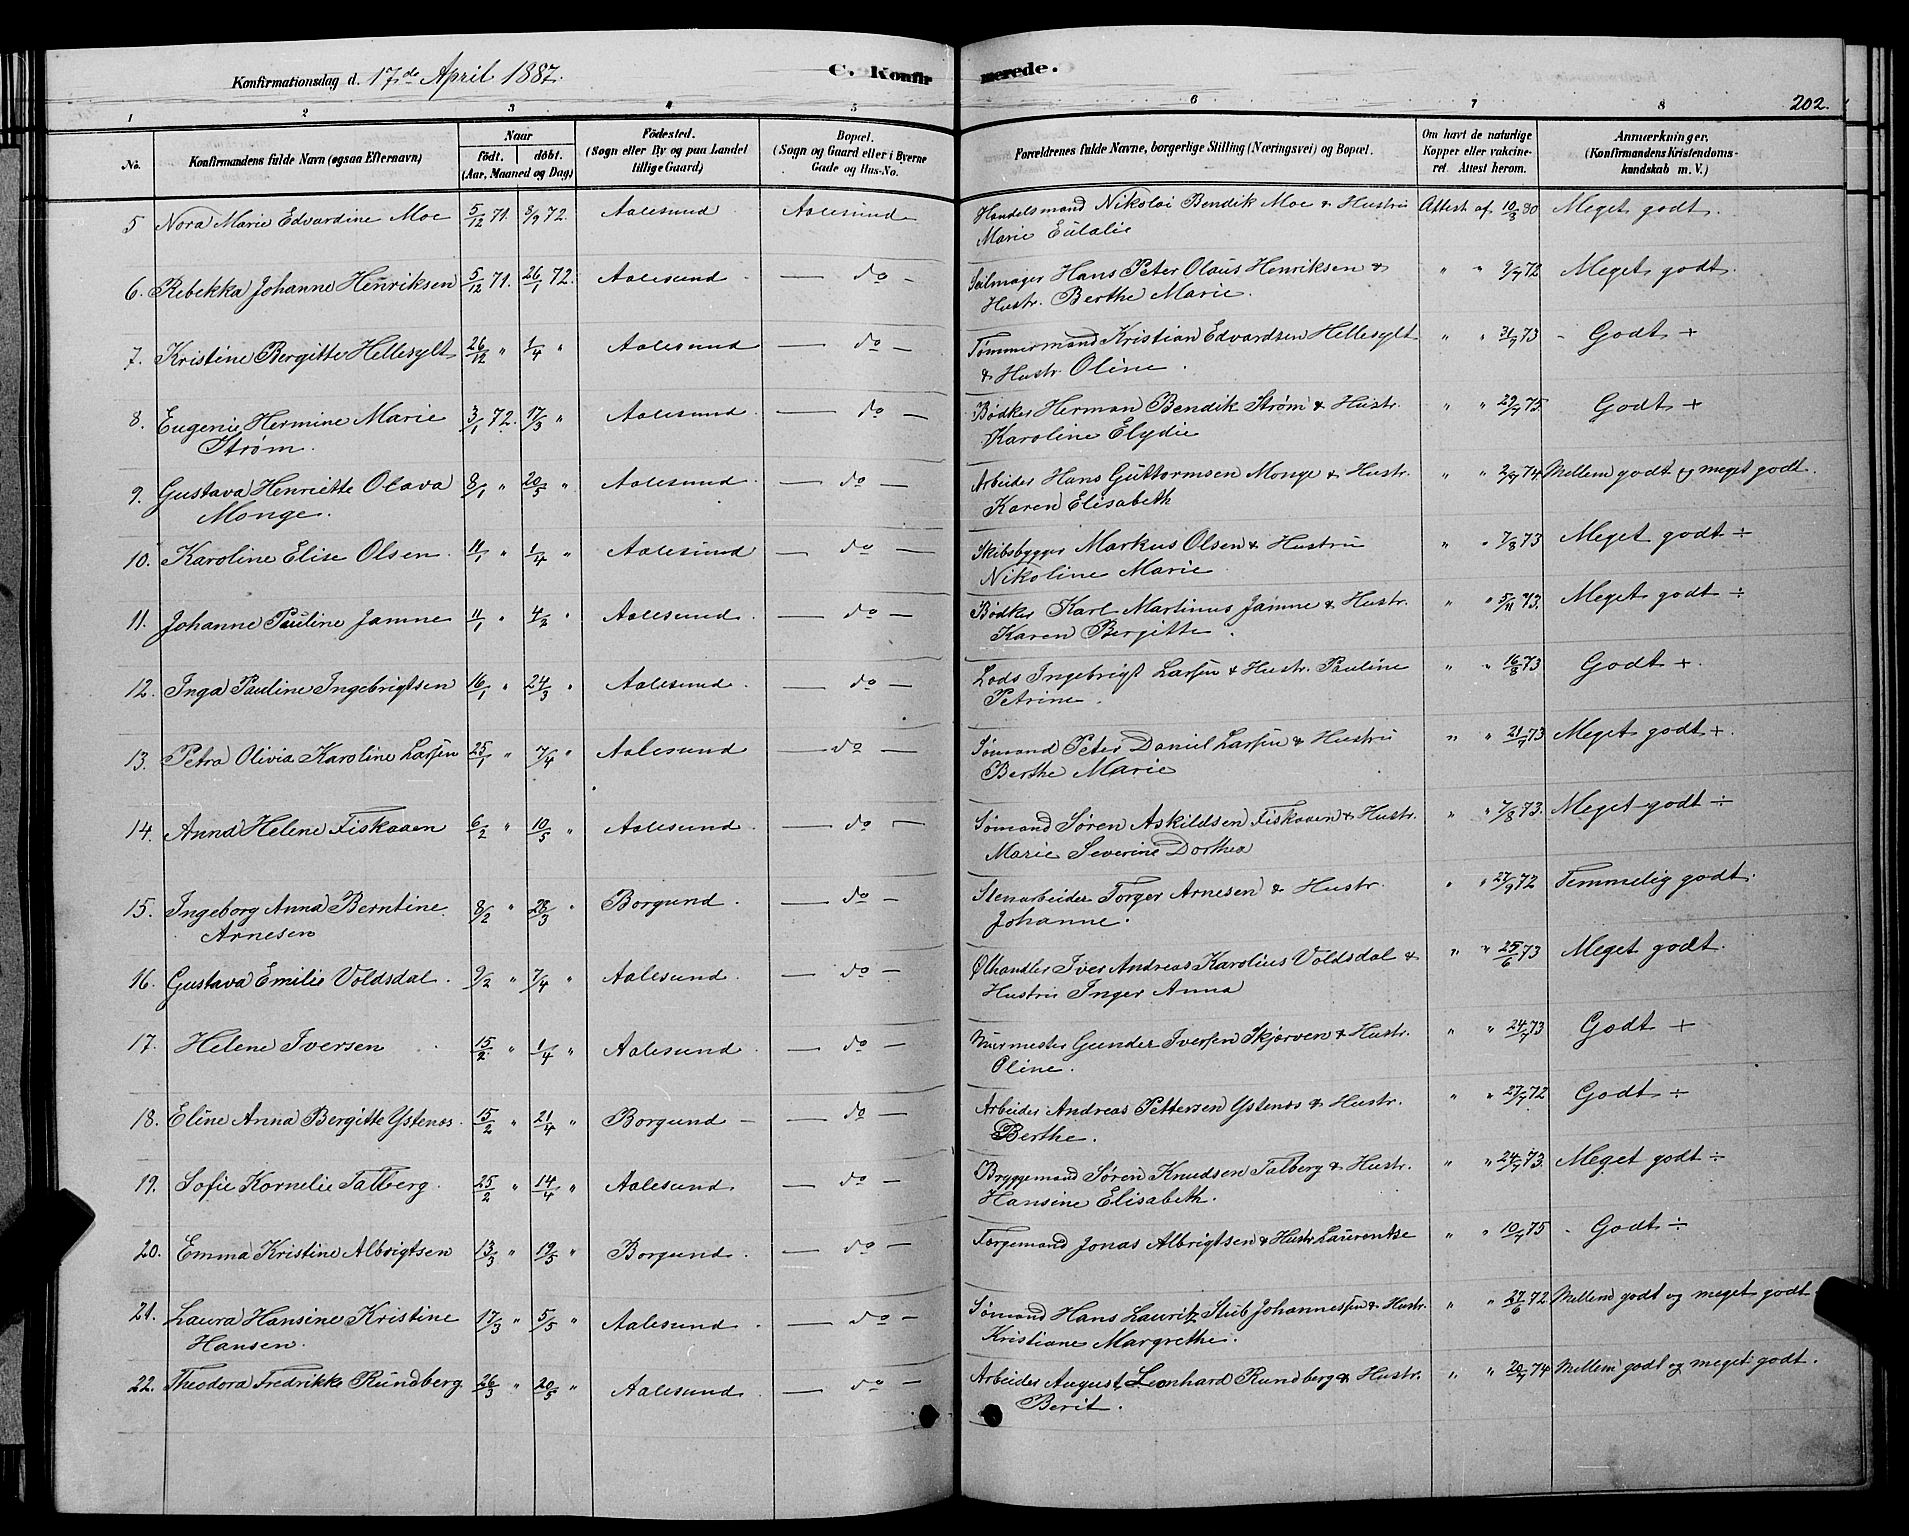 Konfirmationsdag d. 17de April 1887.
C. Konfirmerede.
202.
1 2 3 4 5 6 7 8
No. Konfirmandens fulde Navn (ogsaa Efternavn) Naar født. døbt. (Aar, Maaned og Dag) Fødested. (Sogn eller By og paa Landet tillige Gaard) Bopæl. (Sogn og Gaard eller i Byerne Gade og Hus-No. Forældrenes fulde Navne, borgerlige Stilling (Næringsvei) og Bopæl. Om havt de naturlige Kopper eller vakcineret Attest herom. Anmærkninger. (Konfirmandens Kristendomskundskab m. V.)
5 Nora Marie Edvardine Moe 5/12 71. 3/9 72. Aalesund Aalesund Handelsmand Nikolai Bendik Moe & Hustru Attest af 10/3 80 Meget godt.
Marie Eulalie
6. Rebekka Johanne Henriksen 5/12 71. 26/1 72. Aalesund — do — Seilmager Hans Peter Olaus Henriksen & " " 9/7 72 Meget godt.
Hustr. Berthe Marie.
7. Kristine Bergitte Hellesylt 26/12 " 1/4 " Aalesund — do — Tømmermand Kristian Edvardsen Hellesylt " " 31/7 73 - Godt +
& Hustr. Oline.
8. Eugenie Hermine Marie 3/1 72. 17/3 " Aalesund. — do — Bødker Herman Bendik Strøm & Hustr. " " 29/7 75. Godt +
Strøm. Karoline Elydie
9. Gustava Henriette Olava 8/1 " 20/5 " Aalesund. — do — Arbeider Hans Guttormsen Monge & Hustr. " " 74. Mellem godt og meget godt.
Monge. Karen Elisabeth
10. Karoline Elise Olsen. 11/1 " 1/4 " Aalesund — do — Skibsbygger Markus Olsen & Hustru " " 7/8 73 Meget godt ÷
Nikoline Marie.
11. Johanne Pauline Jamne 11/1 " 4/2 " Aalesund. — do — Bødker Karl Martinus Jamne & Hustr. " " 5/11 73. Meget godt ÷
Karen Bergitte.
12. Inga Pauline Ingebrigtsen 16/1 " 24/3 " Aalesund. — do — Lods Ingebrigt Larsen & Hustr. Pauline " " 16/8 73 Godt +.
Petrine.
13. Petra Olivia Karoline Larsen 25/1 " 7/4 " Aalesund — do — Sømand Peter Daniel Larsen & Hustru " " 21/7 73 Meget godt +.
Berthe Marie
14. Anna Helene Fiskaaen 6/2 " 10/5 " Aalesund. — do — Sømand Søren Askildsen Fiskaaen & Hustr. " " 7/8 73. Meget godt ÷
Marie Severine Dorthea
15. Ingeborg Anna Berntine 8/2 " 28/3 " Borgund. — do — Stenarbeider Torger Arnesen & Hustr. " " 27/9 72 Temmelig godt.
Arnesen Johanne.
16. Gustava Emilie Voldsdal. 9/2 " 7/4 " Aalesund. — do — Ølhandler Iver Andreas Karolius Voldsdal & " " 25/6 73 Meget godt.
Hustru Inger Anna
17. Helene Iversen 15/2 " 1/4 " Aalesund. — do — Murmester Gunder Iversen Skjørven & Hustr. " " 24/7 73 Godt +
Oline.
18. Eline Anna Bergitte Ystenes. 15/2 " 21/4 " Borgund — — do — Arbeider Andreas Pettersen Ystenes & Hustr. " " 27/7 72 Godt ÷
Berthe.
19. Sofie Kornelie Talberg. 25/2 " 14/4 " Aalesund. — do — Bryggemand Søren Knudsen Talberg & Hustr. " " 24/7 73. Meget godt ÷
Hansine Elisabeth.
20. Emma Kristine Albrigtsen 13/3 " 19/5 " Borgund. — do — Færgemand Jonas Albrigtsen & Hustr. Laurentse " " 10/7 75 - Godt ÷
21. Laura Hansine Kristine 17/3 " 5/5 " Aalesund. — do — Sømand Hans Lauritz Stub Johannessen & Hustr. " " 27/6 72 Mellem godt og meget godt
Hansen. Kristiane Margrethe.
22. Theodora Fredrikke Rundberg 26/3 " 20/5 " Aalesund. — do — Arbeider August Leonhard Rundberg & Hustr. " " 20/7 74 Mellem godt og meget godt.
Berit.